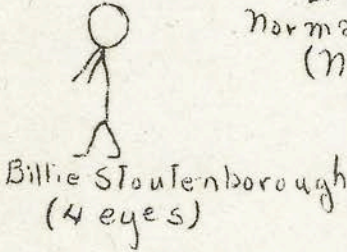 Norma
(N
Billie Stoutenborough
(4 eyes)